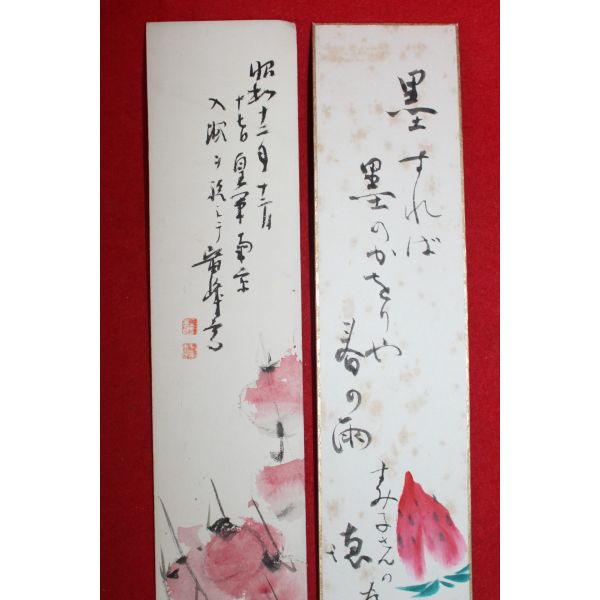 墨すれば
墨のかをりや
春の雨
すみ子さんの
昭和十二年十二月
十七日皇軍南京
入城を祝して